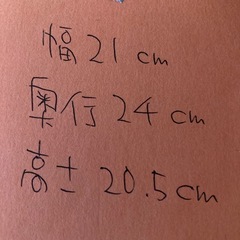 幅 21 cm
奥行 24 cm
高さ 20.5 cm